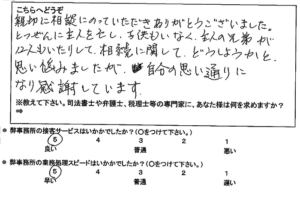 こちらへどうぞ
親切に相談にのっていただきありがとうございました。
とつぜんに主人を亡し、子供もいなく、主人の兄弟が
12人もいたりして、相続に関して、どうしようかと、
思い悩みましたが、自分の思い通りに
なり感謝しています。
※教えて下さい。司法書士や弁護士、税理士等の専門家に、あなた様は何を求めますか？
⇒
● 弊事務所の接客サービスはいかがでしたか？（○をつけて下さい。）
5 4 3 2 1
良い 普通 悪い
● 弊事務所の業務処理スピードはいかがでしたか？（○をつけて下さい。）
5 4 3 2 1
早い 普通 遅い